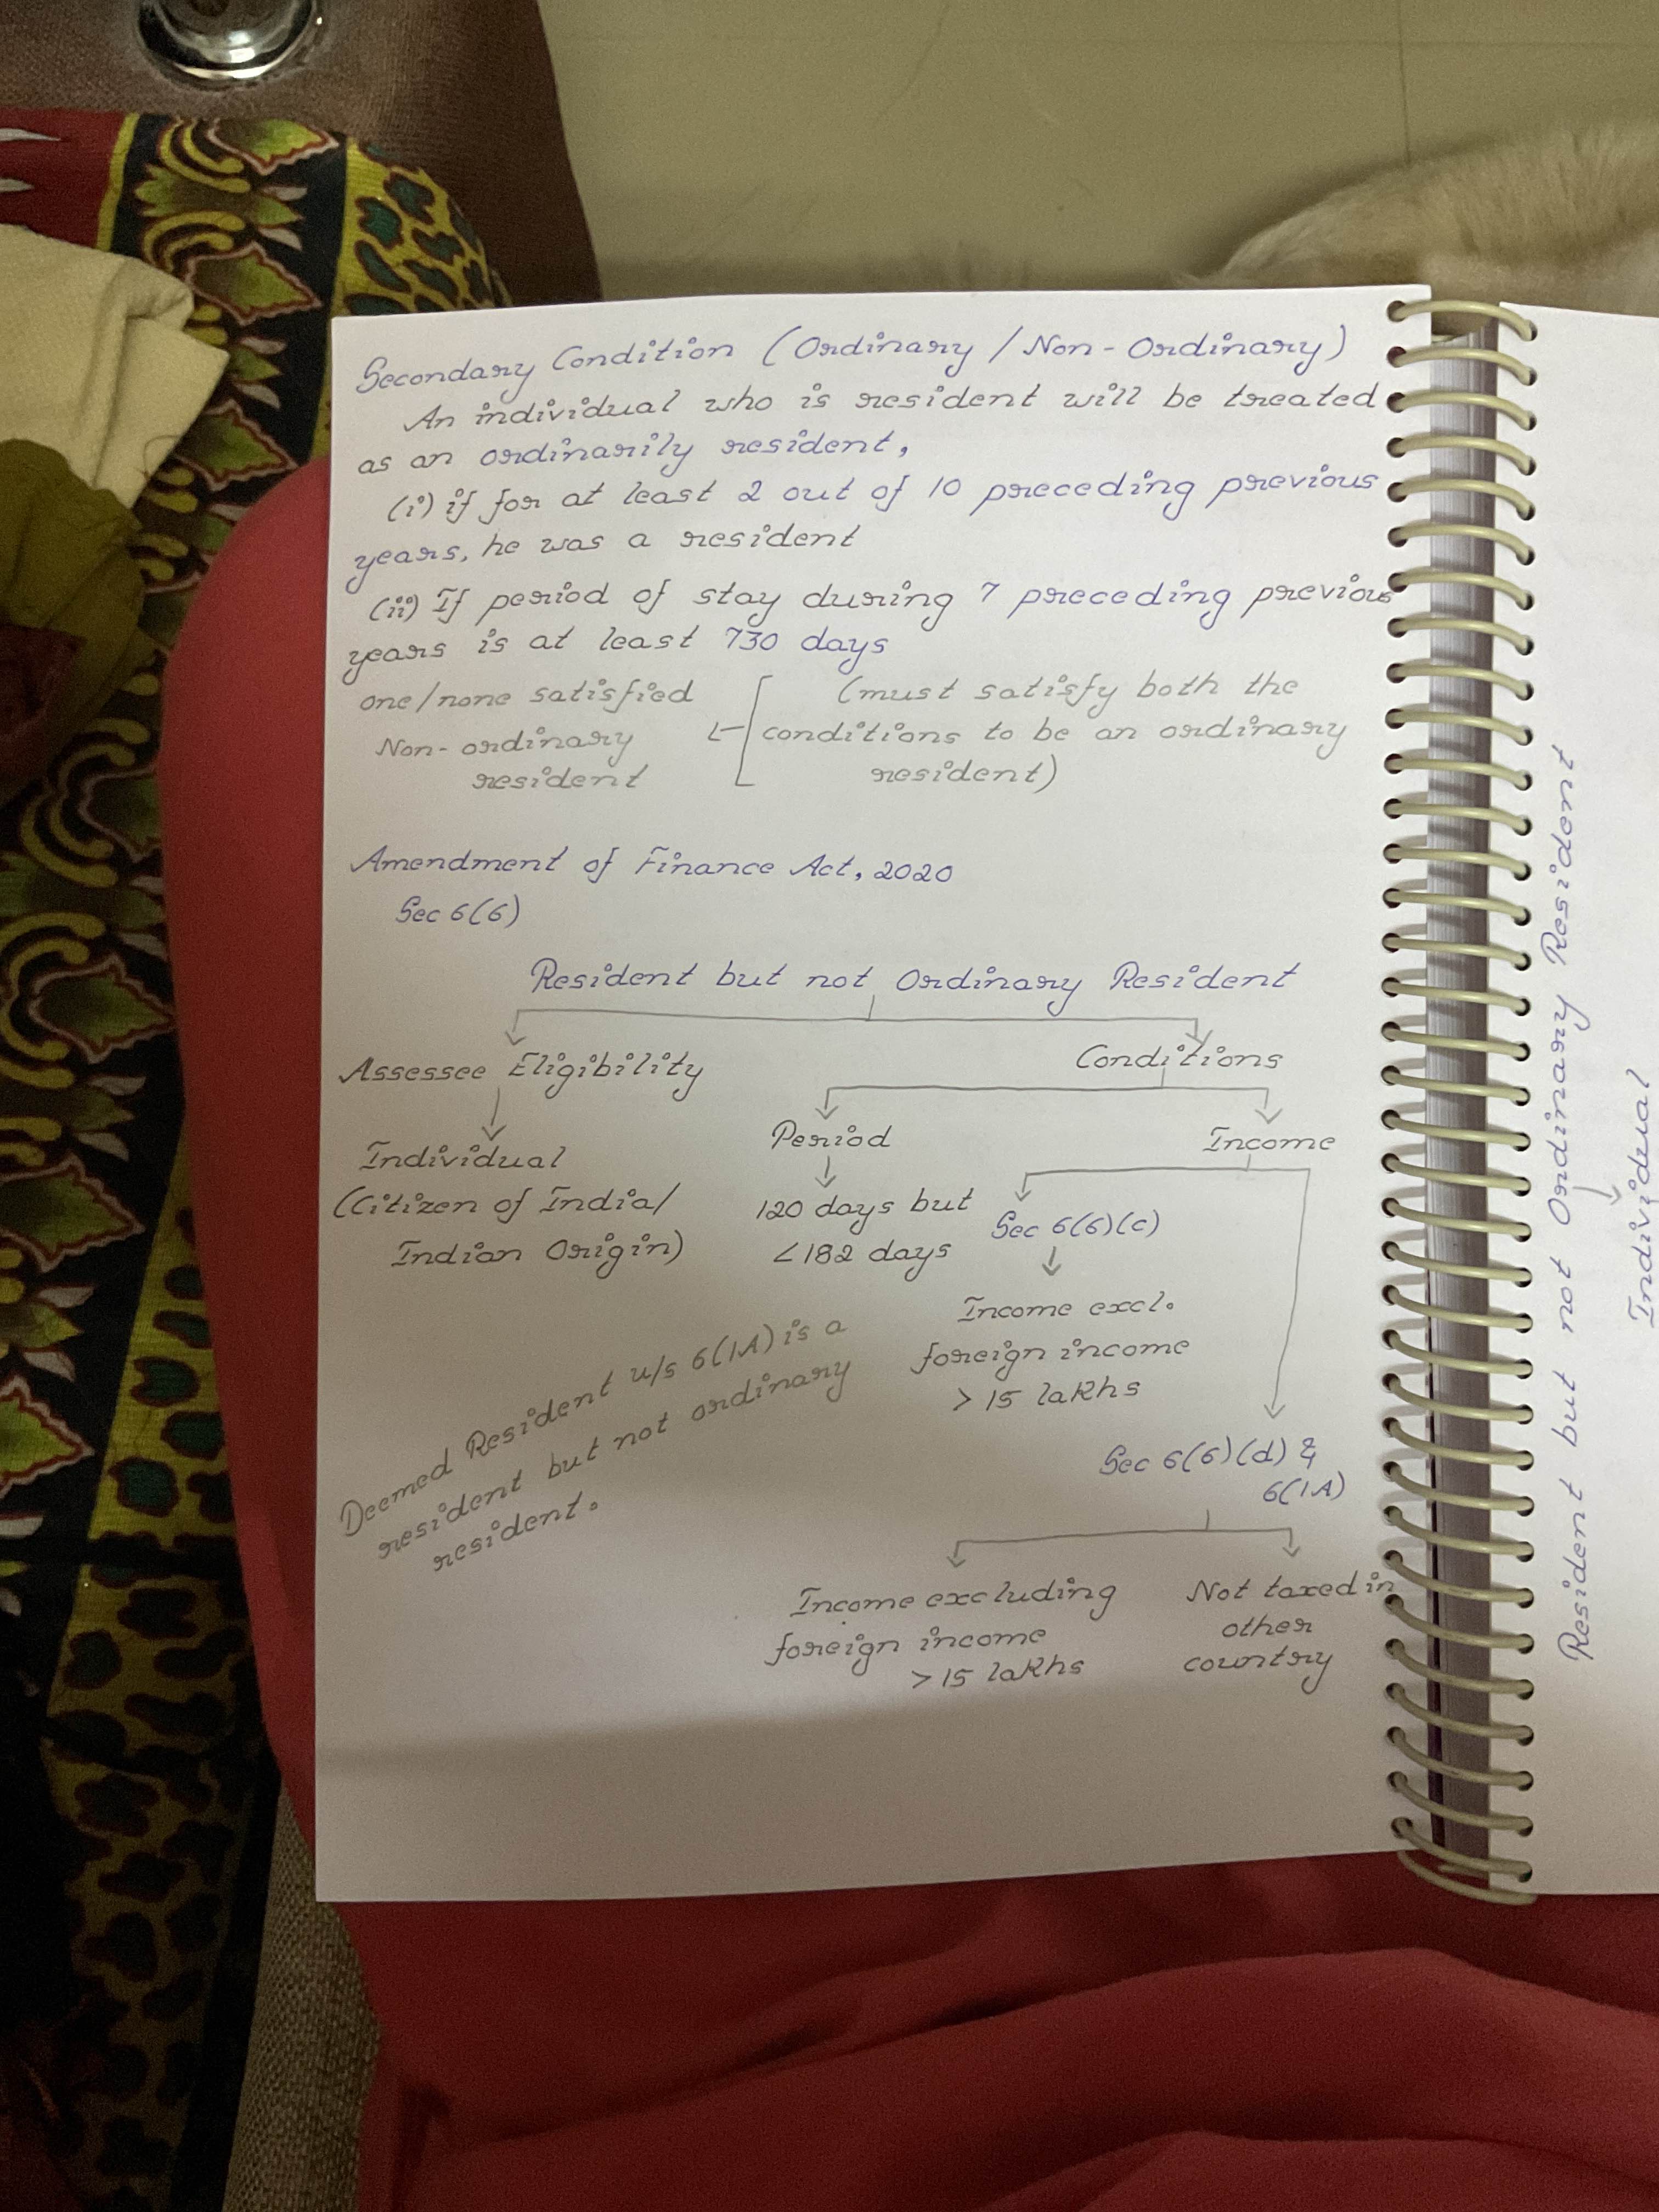 Secondary Condition (Ordinary / Non-Ordinary)
An individual who is resident will be treated
as an ordinarily resident,
(i) if for at least 2 out of 10 preceding previous
years, he was a resident
(ii) If period of stay during 7 preceding previous
years is at least 730 days
one/none satisfied
Non-ordinary
resident
(must satisfy both the
conditions to be an ordinary
resident)
Amendment of Finance Act, 2020
Sec 6(6)
Resident but not Ordinary Resident
Assessee Eligibility
Individual
(Citizen of India/
Indian Origin)
Conditions
Period
120 days but
<182 days
Income
Sec 6(6)(c)
Income excl.
foreign income
> 15 lakhs
Sec 6(6)(d) &
6(1A)
Income excluding
foreign income
> 15 lakhs
Not taxed in
other
country
Deemed Resident u/s 6(1A) is a
resident but not ordinary
resident.
Resident but not Ordinary Resident
Individual